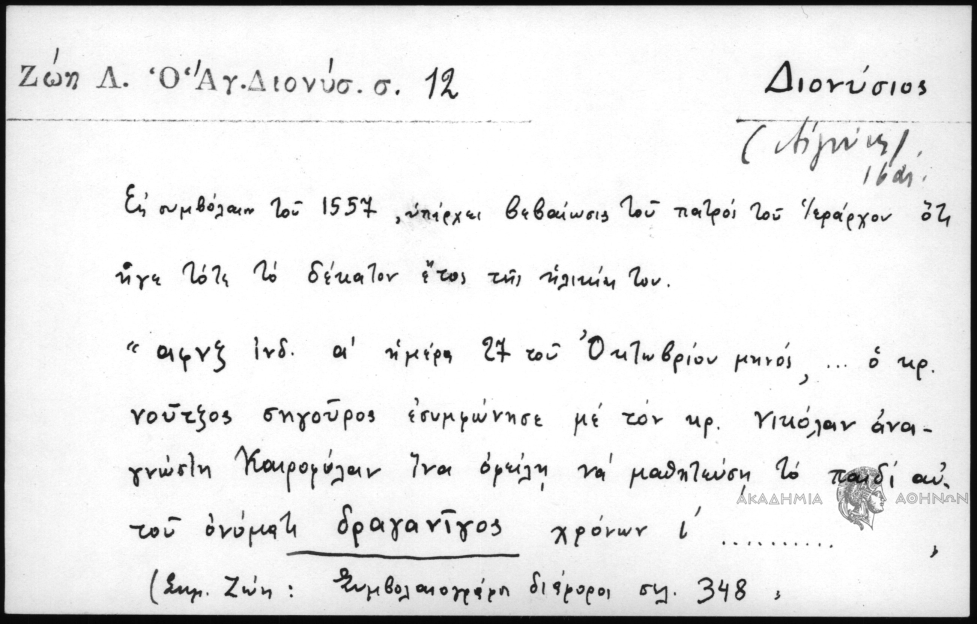 Ζώη Λ. Ὁ Ἅγ. Διονύσ. σ. 12
Διονύσιος
(Αἰγίνης)
16 αἰ.
Εἰς συμβόλαιον τοῦ 1557, ὑπάρχει βεβαίωσις τοῦ πατρός τοῦ Ἱεράρχου ὅτι
ἦγε τότε τό δέκατον ἔτος τῆς ἡλικίας του.
"αφνζ ἰνδ. α' ἡμέρα 27 τοῦ Ὀκτωβρίου μηνός, ... ὁ κρ.
νοῦτζος σηγοῦρος ἐσυμφώνησε μέ τόν κρ. νικόλαν ἀνα-
γνώστη Καιροφύλαν ἵνα ὀφείλη νά μαθητεύση τό παιδί αὐ-
τοῦ ὀνόματι δραγανῖγος χρόνων ί ..........,
(Σημ. Ζώη: Συμβολαιογράφοι διάφοροι σελ. 348,
ΑΚΑΔΗΜΙΑ ΑΘΗΝΩΝ